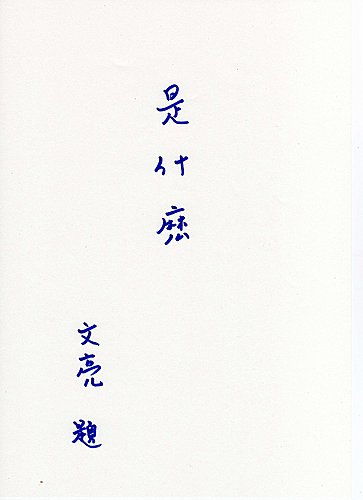 是什麽
文亮題